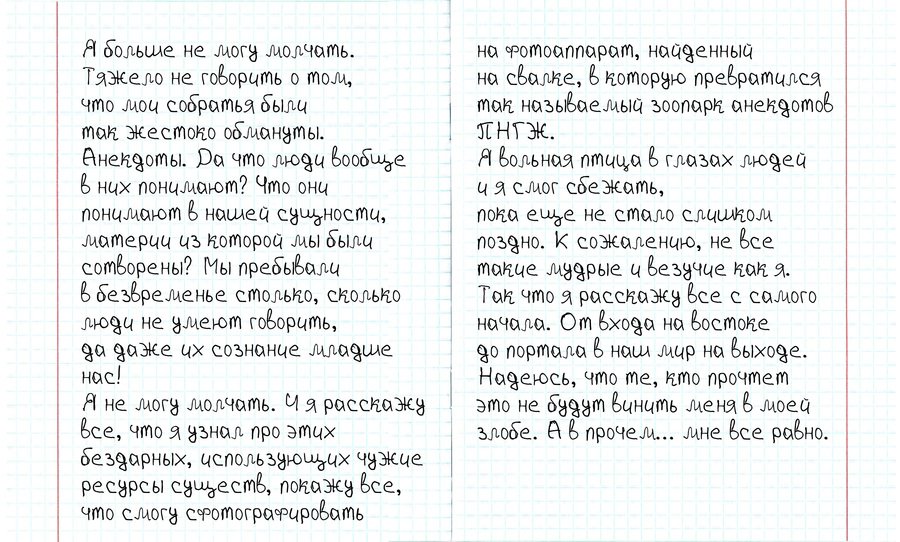 Я больше не могу молчать.
Тяжело не говорить о том,
что мои собратья были
так жестоко обмануты.
Анекдоты. Да что люди вообще
в них понимают? Что они
понимают в нашей сущности,
материи из которой мы были
сотворены? Мы пребывали
в безвременье столько, сколько
люди не умеют говорить,
да даже их сознание младше
нас!
Я не могу молчать. И я расскажу
все, что я узнал про этих
бездарных, использующих чужие
ресурсы существ, покажу все,
что смогу сфотографировать
на фотоаппарат, найденный
на свалке, в которую превратился
так называемый зоопарк анекдотов
ПНГЖ.
Я вольная птица в глазах людей
и я смог сбежать,
пока еще не стало слишком
поздно. К сожалению, не все
такие мудрые и везучие как я.
Так что я расскажу все с самого
начала. От входа на востоке
до портала в наш мир на выходе.
Надеюсь, что те, кто прочтет
это не будут винить меня в моей
злобе. А в прочем... мне все равно.